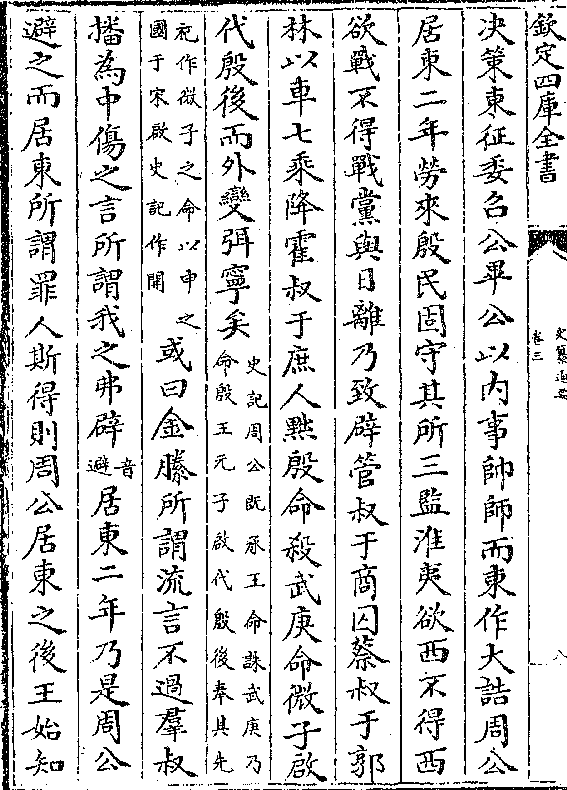 欽定四庫全書
史纂通要
卷三
八
决策東征委召公畢公以内事帥師而東作大誥周公
居東二年勞來殷民固守其所三監淮夷欲西不得西
欲戰不得戰黨與日離乃致辟管叔于商囚蔡叔于郭
林以車七乘降霍叔于庶人黜殷命殺武庚命微子啟
代殷後而外變弭寧矣史記周公既承王命誅武庚乃
命殷王元子啟代殷後奉其先
祀作微子之命以申之
國于宋啟史記作開
或曰金縢所謂流言不過羣叔
播為中傷之言所謂我之弗辟音
避居東二年乃是周公
避之而居東所謂罪人斯得則周公居東之後王始知